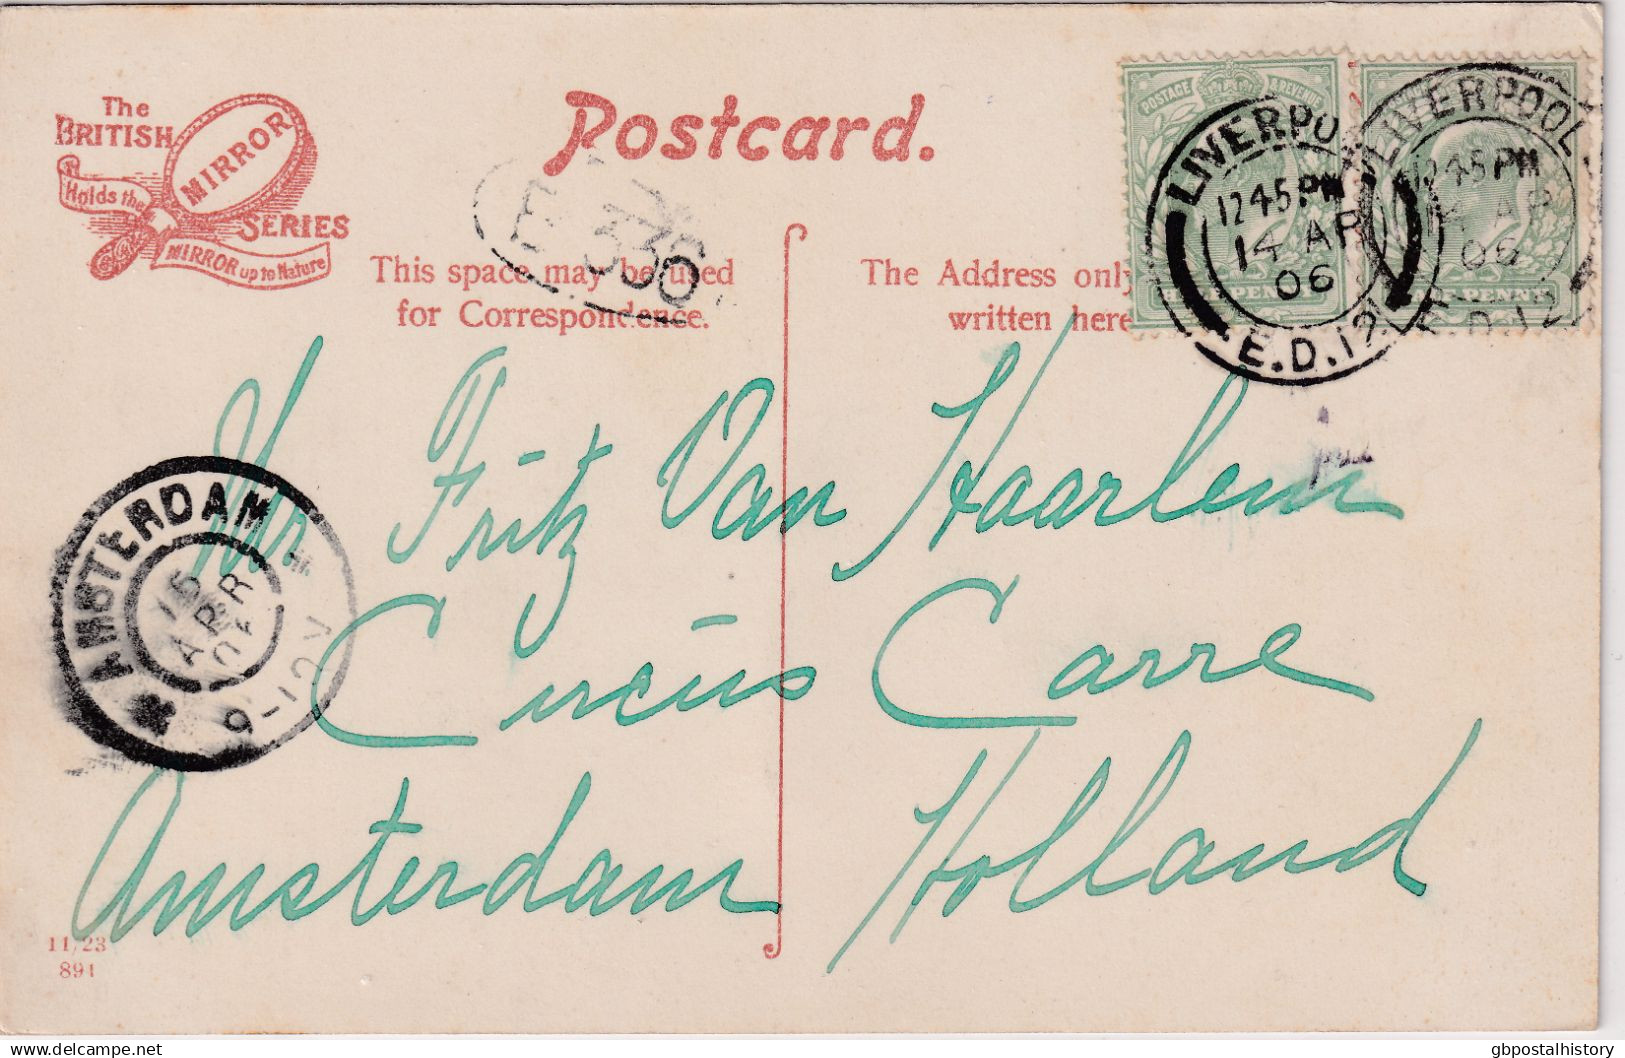 The
BRITISH
MIRROR
SERIES
Holds the
MIRROR up to Nature
Postcard.
336
This space may be used
for Correspondence.
The Address only
written here
POSTAGE REVENUE
LIVERPO
12 45 PM
14 AP
06
E.D.12
LIVERPOOL
12 45 PM
14 AP
06
D.12
Mr Fritz Van Haarlem
Circus Carre
Amsterdam Holland
AMSTERDAM
APR
9-10V
11/23
891
delcampe.net
gbpostalhistory